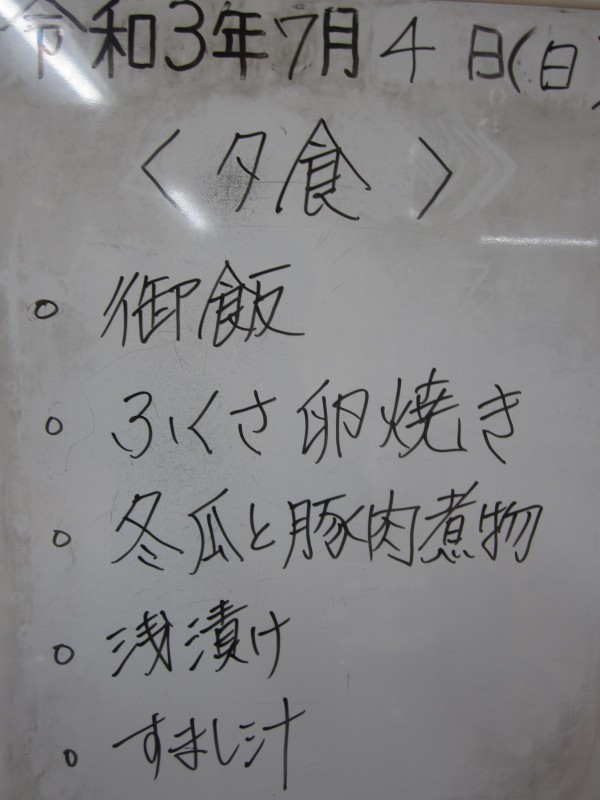 令和3年7月4日(日)
〈夕食〉
○ 御飯
○ ふくさ卵焼き
○ 冬瓜と豚肉煮物
○ 浅漬け
○ すまし汁